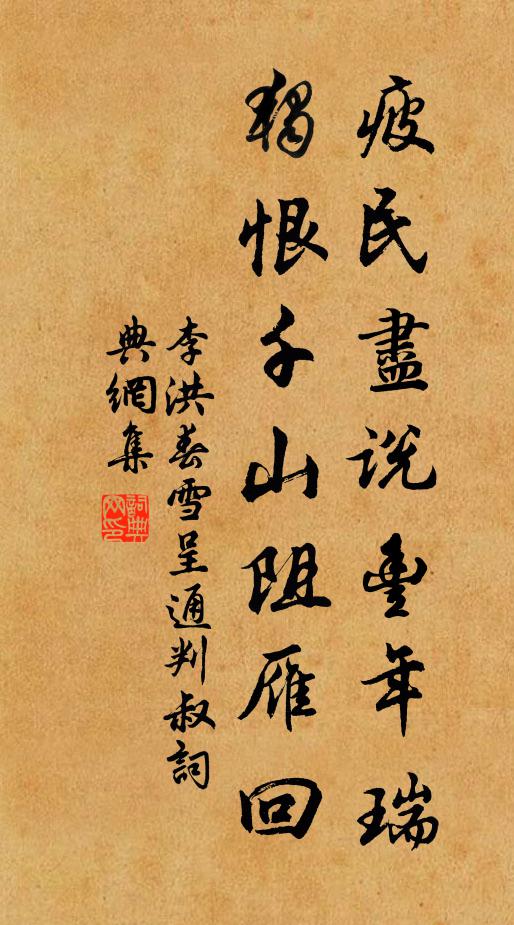 疲民盡說豐年瑞
獨恨千山阻雁回
李洪春雪呈通判叔詞
典網集
詞典網印